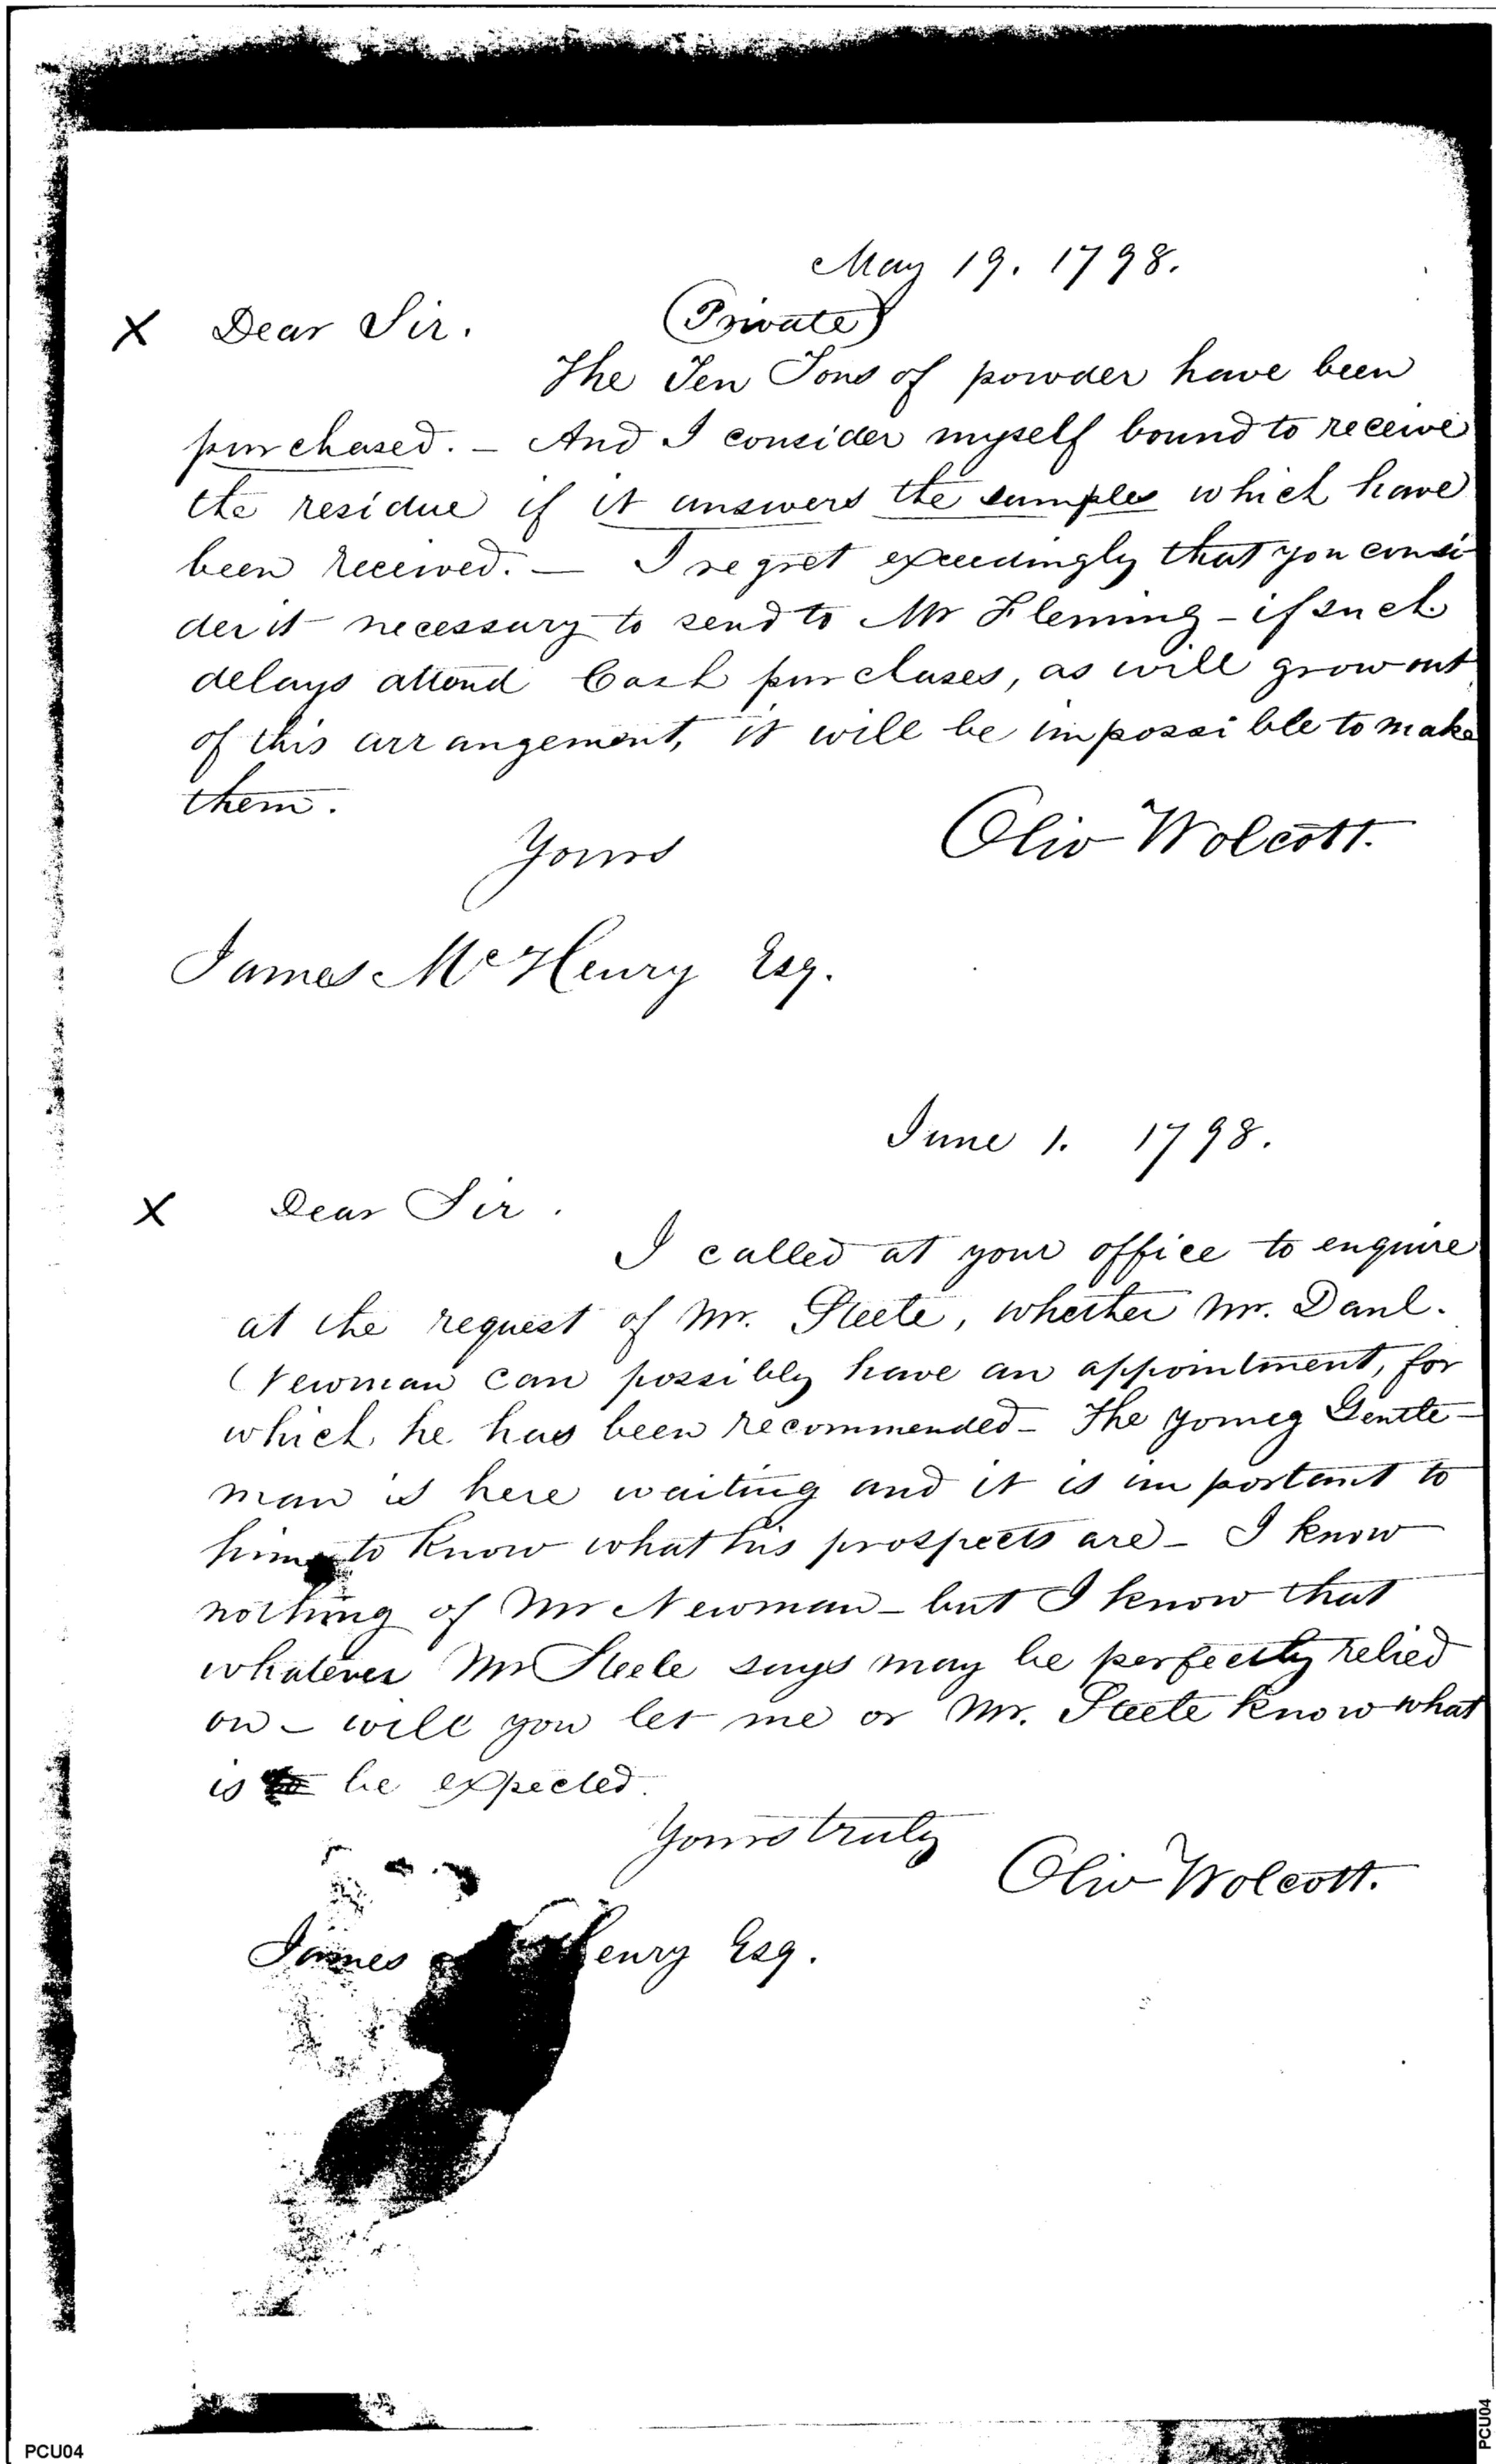 May 19. 1798.
(Private)
X Dear Sir.
The Ten Tons of powder have been
purchased. - And I consider myself bound to receive
the residue if it answers the samples which have
been received. — I regret exceedingly that you consi-
der it necessary to send to Mr Fleming - if such
delays attend Cash purchases, as will grow out
of this arrangement, it will be impossible to make
them.
Yours
Oliv Wolcott.
James McHenry Esq.
June 1. 1798.
X Dear Sir.
I called at your office to enquire
at the request of Mr. Steele, whether Mr. Danl.
Newman can possibly have an appointment, for
which he has been recommended - The young Gentle-
man is here waiting and it is important to
him to know what his prospects are - I know
nothing of Mr Newman - but I know that
whatever Mr Steele says may be perfectly relied
on - will you let me or Mr. Steele know what
is to be expected.
Yours truly
Oliv Wolcott.
James Henry Esq.
PCU04
PCU04